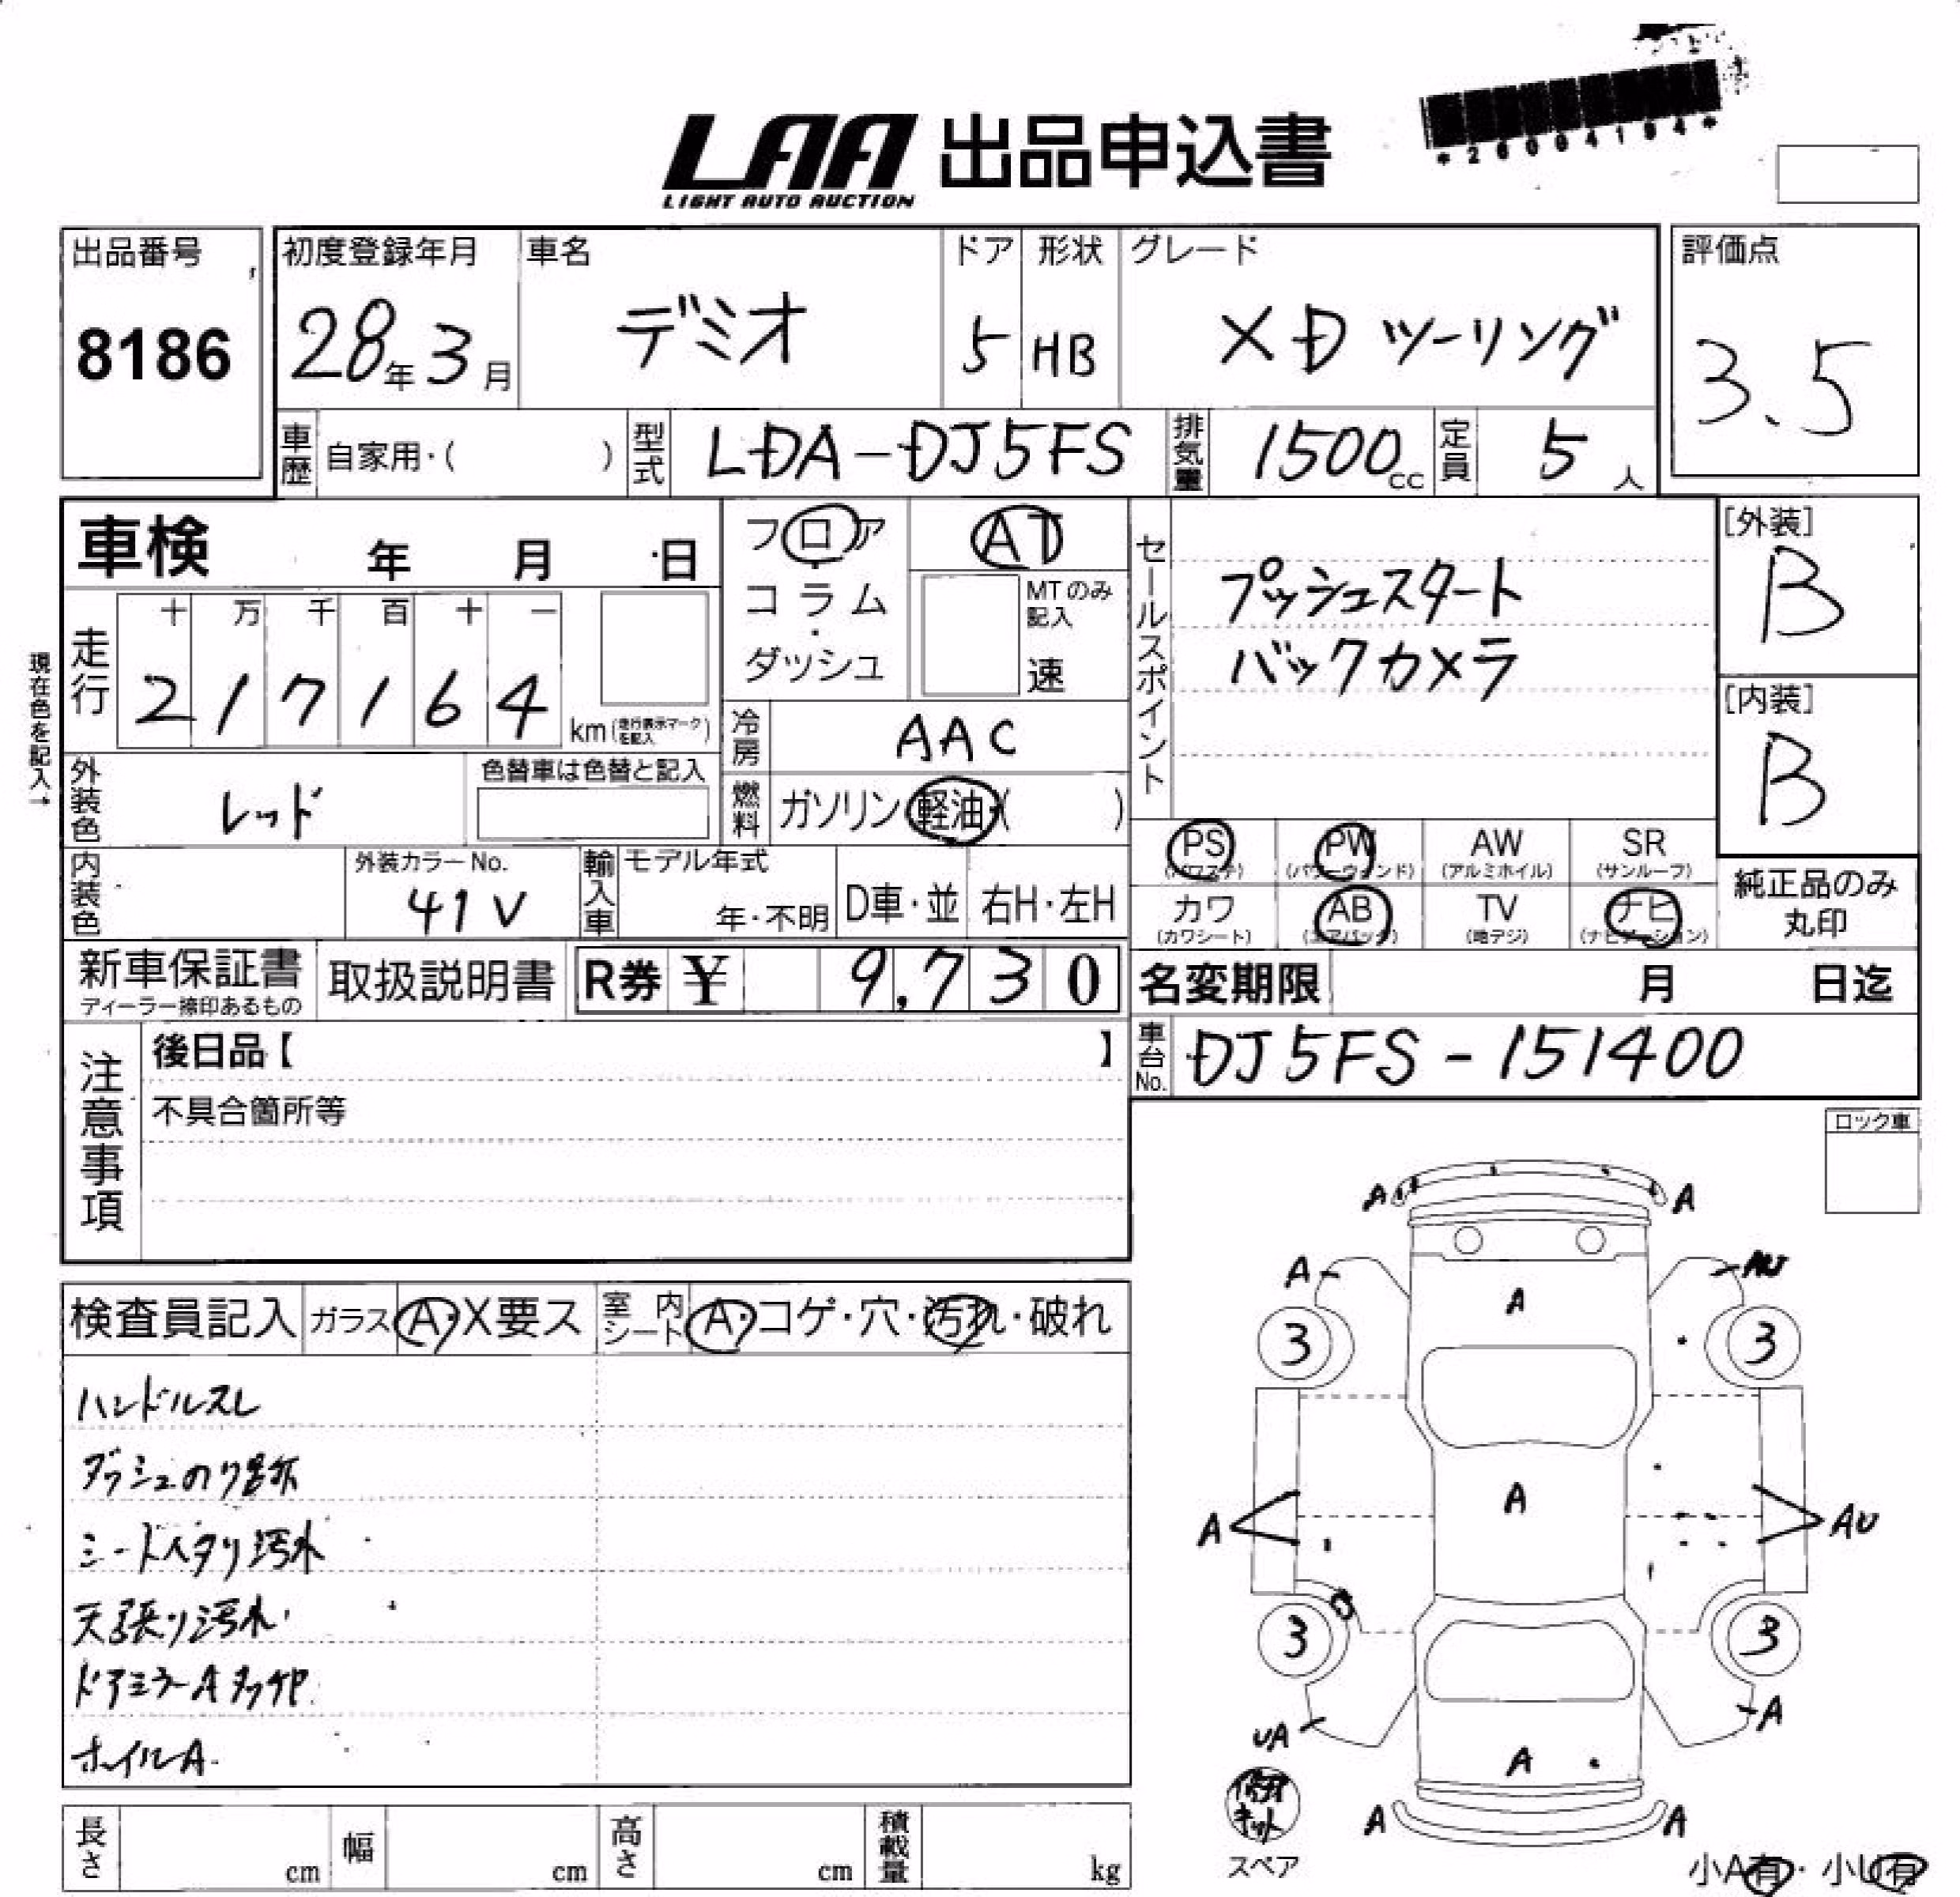 LAA 出品申込書
LIGHT AUTO AUCTION
*26004194*
出品番号
8186
初度登録年月
28年3月
車名
デミオ
ドア
5
形状
HB
グレード
XD ツーリング
評価点
3.5
車歴 自家用・( )
型式 LDA-DJ5FS
排気量 1500cc
定員 5人
車検 年 月 日
フロア
コラム・
ダッシュ
AT
MTのみ記入
速
セールスポイント
プッシュスタート
バックカメラ
[外装]
B
[内装]
B
現在色を記入→
走行
十 万 千 百 十 一
2 1 7 1 6 4 km(走行表示マークを記入)
冷房 AAC
外装色 レッド
色替車は色替と記入
燃料 ガソリン・軽油・( )
PS AW SR
PW
(パワステ) (パワーウィンド) (アルミホイル) (サンルーフ)
カワ AB TV ナビ
(カワシート) (エアバッグ) (地デジ) (ナビゲーション)
純正品のみ
丸印
内装色
外装カラーNo.
41V
輸入車
モデル年式
年・不明
D車・並
右H・左H
新車保証書
ディーラー捺印あるもの
取扱説明書
R券 ¥ 9,730
名変期限 月 日迄
車台No. DJ5FS-151400
注意事項
後日品【 】
不具合箇所等
ロック車
検査員記入 ガラス A・X要ス 室内シート A・コゲ・穴・汚れ・破れ
ハンドルスレ
ダッシュのり跡
シートヘタリ汚れ
天張り汚れ
ドアミラーAタッチP
ホイルA
A A
A AU
A
3 3
A
A AU
3 3
UA A
A
A A
修理キット
スペア
小A有・小U有
長さ cm
幅 cm
高さ cm
積載量 kg